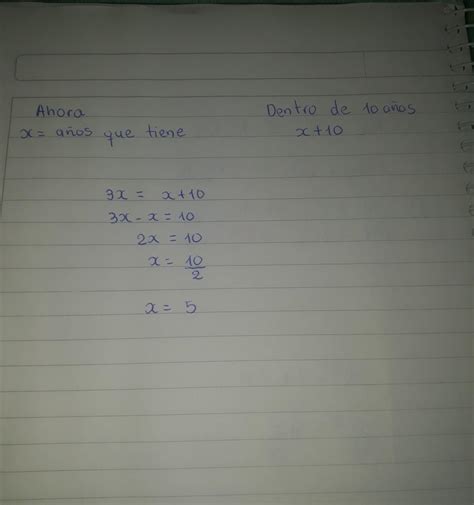 Ahora Dentro de 10 años
x = años que tiene x+10
3x = x+10
3x - x = 10
2x = 10
x = 10/2
x = 5